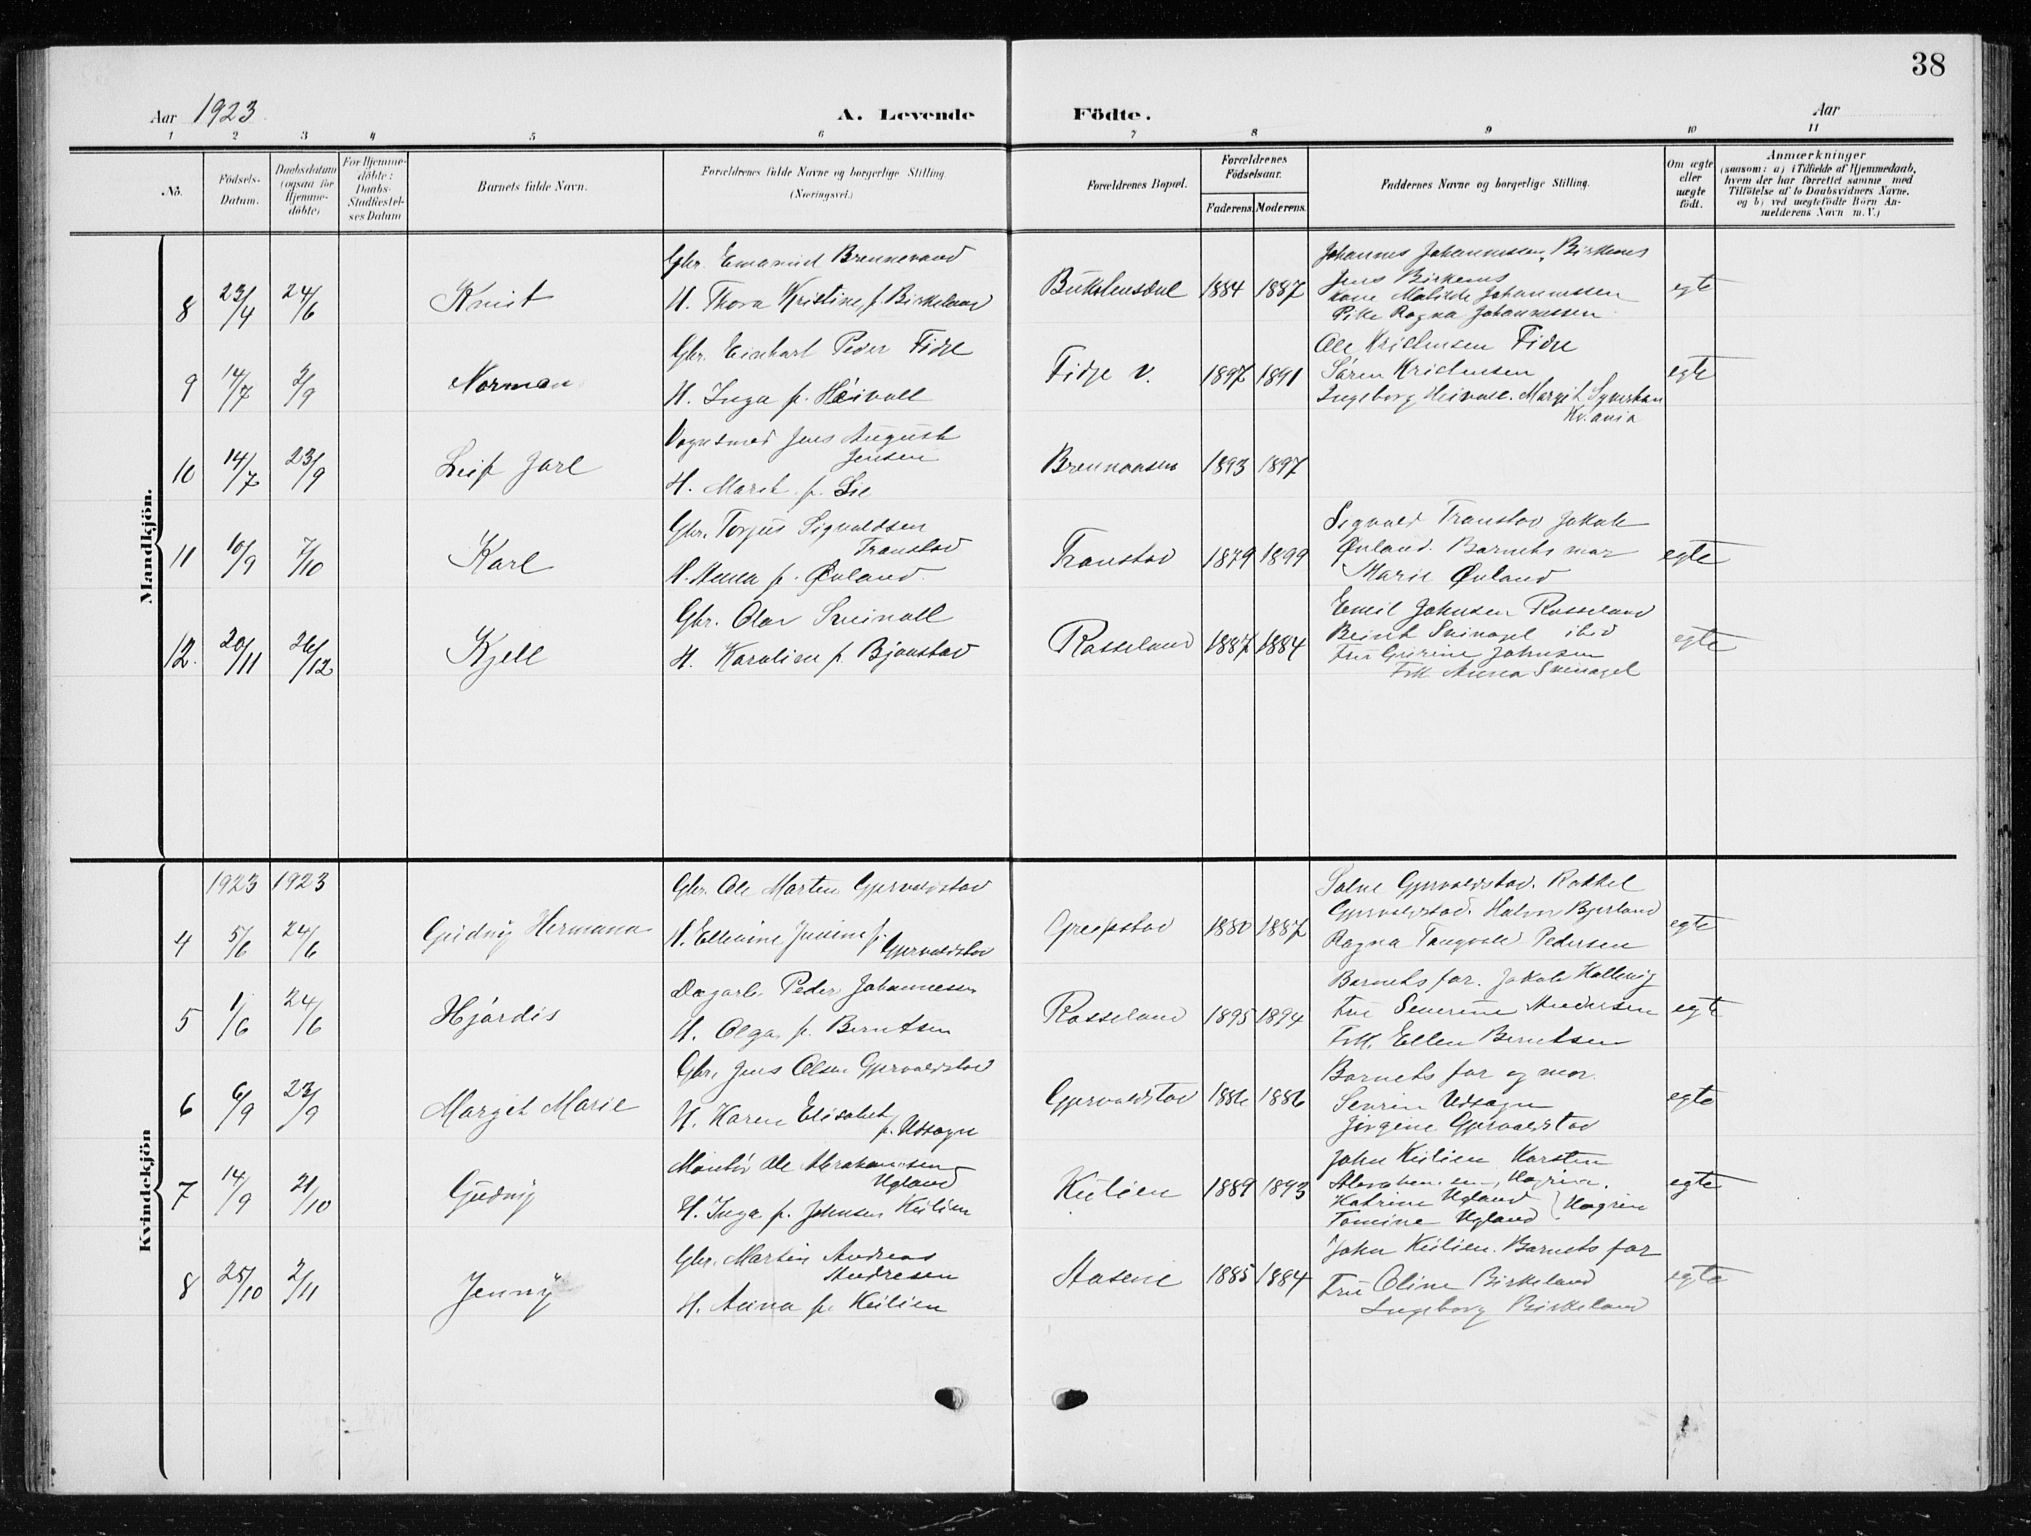 38
Aar 1923 A. Levende Födte. Aar
1 2 3 4 5 6 7 8 9 10 11
No. Födsels-Datum. Daabsdatum (ogsaa for Hjemme-döbte) For Hjemme-döbte: Daabs-Stadfæstel-ses Datum Barnets fulde Navn. Forældrenes fulde Navne og borgerlige Stilling. (Næringsvei.) Forældrenes Bopæl. Forældrenes Födselsaar. Faderens. Moderens. Faddernes Navne og borgerlige Stilling. Om ægte eller uægte födt. Anmærkninger (saasom: a) i Tilfælde af Hjemmedaab, hvem der har forrettet samme med Tilföielse af to Daabsvidners Navne, og b) ved uægtefödte Börn An-melderens Navn m. V.)
Mandkjön.
8 23/4 24/6 Knut Gbr. Emanuel Brennevand
H. Thora Kristine f. Birkeland 1884 1887 Johannes Johannessen, Birkenes
Jens Birkenes
Kone Matilde Johannessen
Pike Ragna Johannessen egte
9 14/7 2/9 Norman Gbr. Einhart Peder Fidje
H. Inga f. Heivoll Fidje v. 1897 1891 Ole Kristensen Fidje
Søren Kristensen
Ingeborg Heivoll. Margit Syvertsen
egte
10 14/7 23/9 Leif Jarl Vognsmed Jens August
Jensen
H. Marit f. Lie Brennaasen 1893 1897
11 10/9 7/10 Karl Gbr. Torjus Sigvaldsen
Transtad
H. Anna f. Øvland Transtad 1879 1899 Sigvald Transtad Jakob
Øvland. Barnets mor
Marie Øvland egte
12. 20/11 26/12 Kjell Gbr. Olav
H. Karoline f. Bjonstad Rosseland 1887 1884 Emil Johnsen Rosseland
Berit Svinagel ibid
Fru Gurine Johnsen
Frk Anna Svinagel egte
Kvindekjön
1923 1923
4 5/6 24/6 Gudny Hermana Gbr. Ole Martin Gjervoldstad
H. Ellevine Juvine f.
Gjervoldstad Greipstad 1880 1887 Salve Gjervoldstad. Rakkel
Gjervoldstad. Halvor Bjorland
Ragna Tangvold Pedersen egte
5 1/6 24/6 Hjørdis Dagarb. Peder Johannessen
H. Olga f. Berntsen Rosseland 1895 1894 Barnets far. Jakob Hallevig
Fru Severine Andersen
Frk. Ellen Berntsen egte
6 6/9 23/9 Margit Marie Gbr. Jens Olsen Gjervoldstad
H. Karen Elisabet
f. Udsogn Gjervoldstad 1886 1886 Barnets far og mor.
Sevrin Udsogn
Jørgine Gjervoldstad egte
7 14/9 21/10 Gudny Montør Ole Abrahamsen
Ugland
H. Inga f. Johnsen Kulien Kulien 1889 1893 John Kulien Karsten
Abrahamsen,
Katrine Ugland
Tomine Ugland egte
8 25/10 2/11 Jenny Gbr. Martin Andreas
Andresen
H. Anna f. Kulien Aasene 1885 1884 John Kulien. Barnets far
Fru Oline Birkeland
Ingeborg Birkeland egte